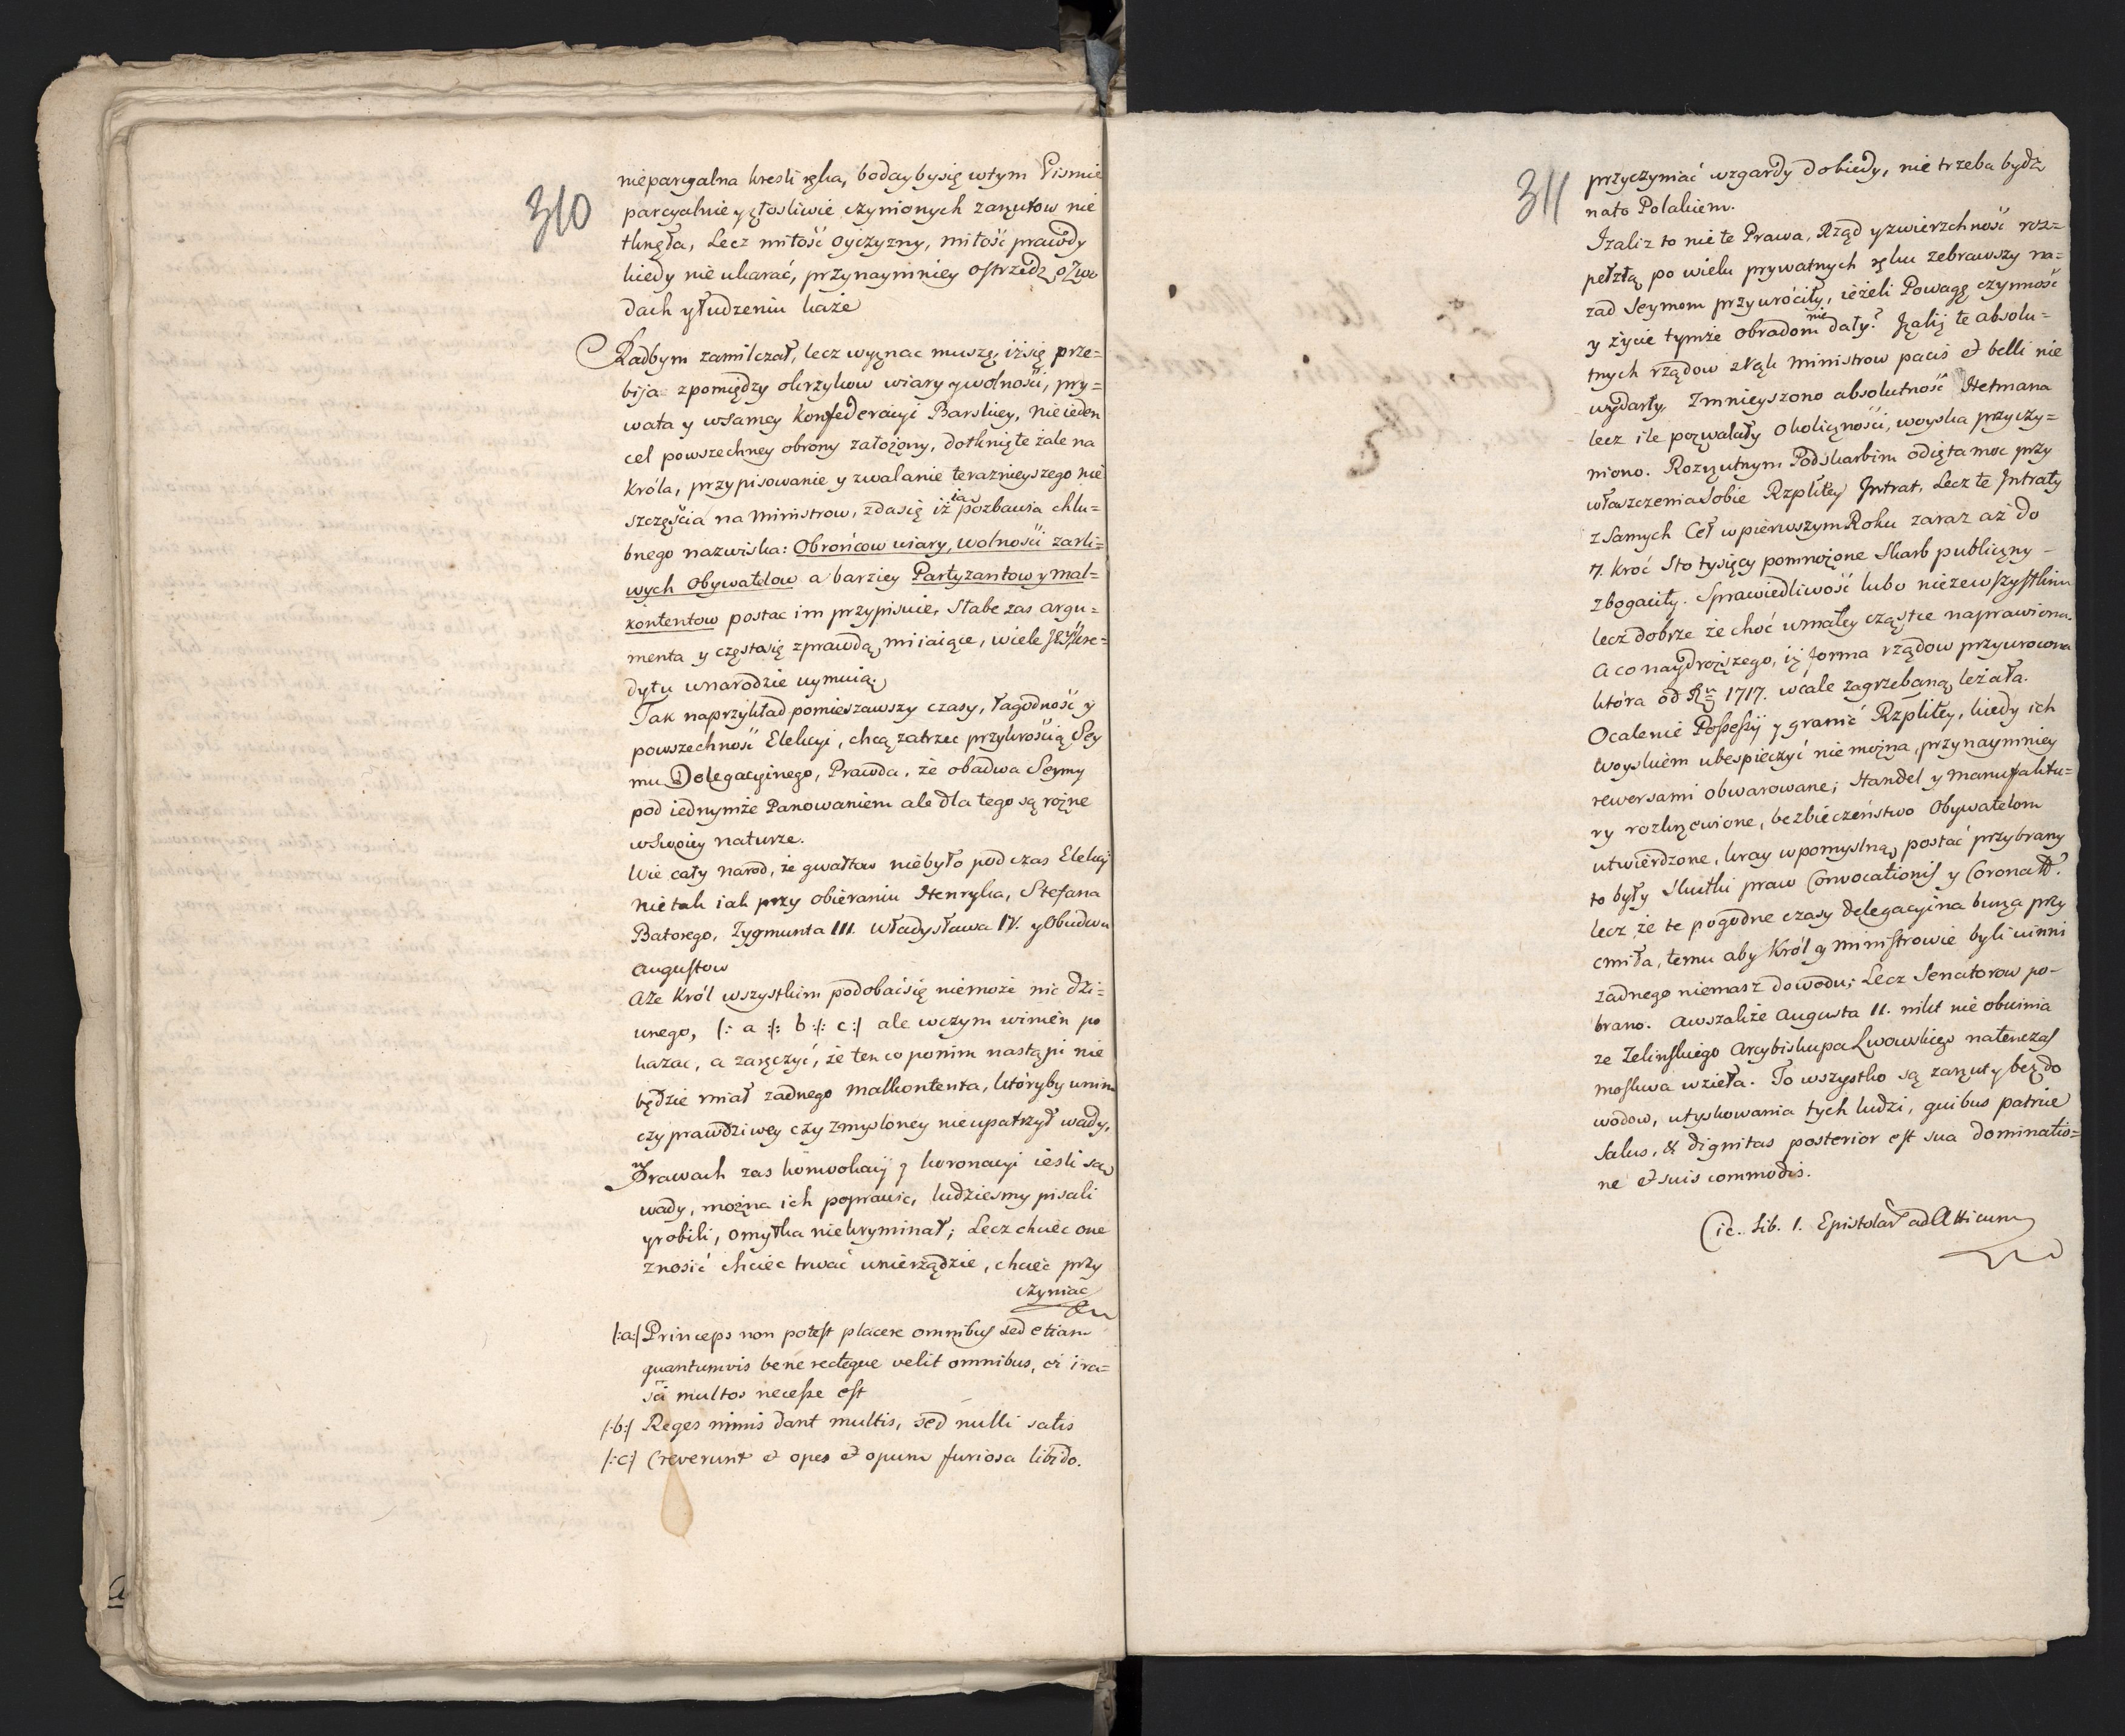 310
nieparcyalna kresli ręka, bodayby się w tym Pismie
parcyalnie y złosliwie czynionych zarzutow nie
tknęła, Lecz miłość Oyczyzny, miłość prawdy
kiedy nie ukarać, przynaymniey ostrzedz o Zwo
dach y łudzeniu każe
Radbym zamilczał, lecz wyznac muszę, iż się prze=
bija z pomiędzy okrzykow wiary y wolności, pry=
wata y w samey konfederacyi Barskiey, nie ieden
cel powszechney obrony założony, dotknięte żale na
Króla, przypisowanie y zwalanie terazniejszego nie
szczęścia na Ministrow, zda się iż ia pozbawia chlu=
bnego nazwiska: Obrońcow wiary, wolności zarli=
wych Obywatelow a barziey Partyzantow y mal=
kontentow postac im przypisuie, Słabe zas argu=
menta y często się z prawdą miiaiące, wiele kre=
dytu w narodzie uymuią.
Tak naprzykład pomieszawszy czasy, łagodność y
powszechność Elekcyi, chcą zatrzec przykrością Sey
mu Delegacyinego, Prawda, że obadwa Seymy
pod iednymże Panowaniem ale dla tego są rożne
w swoiey naturze.
Wie cały narod, że gwałtow nie było pod czas Elekcyi
nie tak iak przy obieraniu Henryka, Stefana
Batorego, Zygmunta III. Władysława IV. y Obudwu
Augustow
Aże Król wszystkim podobać się niemoże nic dzi=
wnego, /: a :/: b :/: c :/ ale w czym winien po
kazac, a zaręczyć, że ten co po nim nastąpi nie
będzie miał zadnego malkontenta, któryby w nim
czy prawdziwey czy zmysloney nie upatrzył wady,
w Prawach zas konwokacyi y koronacyi iesli są
wady, można ich poprawic, ludziesmy pisali
y robili, omyłka nie kryminał; Lecz chciec one
znosić chciec trwać w nierządzie, chciec przy
czyniać
/:a:/ Princeps non potest placere omnibus sed etiam
quantumvis bene recteque velit omnibus, ei ira=
sci multos necesse est
/:b:/ Reges nimis dant multis, sed nulli satis
/:c:/ Creverunt et opes et opum furiosa libido.
311
przyczyniać wzgardy do biedy, nie trzeba bydz
na to Polakiem.
Izaliz to nie te Prawa, Rząd y zwierzchność roz=
pełzłą po wielu prywatnych ręku zebrawszy na=
zad Seymom przywróciły, ieżeli Powagę czynność
y życie tymże obradom nie dały? Izaliż te absolu=
tnych rządow z rąk Ministrow pacis et belli nie
wydarły. Zmnieyszono absolutność Hetmana
lecz ile pozwalały okoliczności, woyska przyczy=
niono. Rozrzutnym Podskarbim odięta moc przy
właszczenia Sobie Rzpltey Intrat, Lecz te Intraty
z Samych Ceł w pierwszym Roku zaraz aż do
7. kroć Sto tysięcy pomnożone Skarb publiczny -
zbogaciły. Sprawiedliwość lubo nie ze wszystkim
lecz dobrze że choć w małey cząstce naprawiona.
A co naydroższego, iż forma rządow przywrocona
która od Ru 1717. wcale zagrzebaną leżała.
Ocalenie Possessyi y granić Rzpltey, kiedy ich
Woyskiem ubespieczyć nie można, przynaymniey
rewersami obwarowane; Handel y Manufaktu=
ry rozkrzewione, bezbieczeństwo Obywatelom
utwierdzone, kray w pomyslną postać przybrany
to były skutki praw Convocationis y Coronatt.
lecz że te pogodne czasy delegacyina burza przy
cmiła, temu aby Król y Ministrowie byli winni
zadnego niemasz dowodu; Lecz Senatorow po-
brano. Awszakże Augusta II. nikt nie obwinia
ze Zelinskiego Arcybiskupa Lwowskiego natenczas
Moskwa wzieła. To wszystko są zarzuty bez do
wodow, utyskowania tych ludzi, quibus patriae
Salus, & dignitas posterior est sua dominatio=
ne et suis commodis.
Cic. Lib. 1. Epistolar ad Atticum